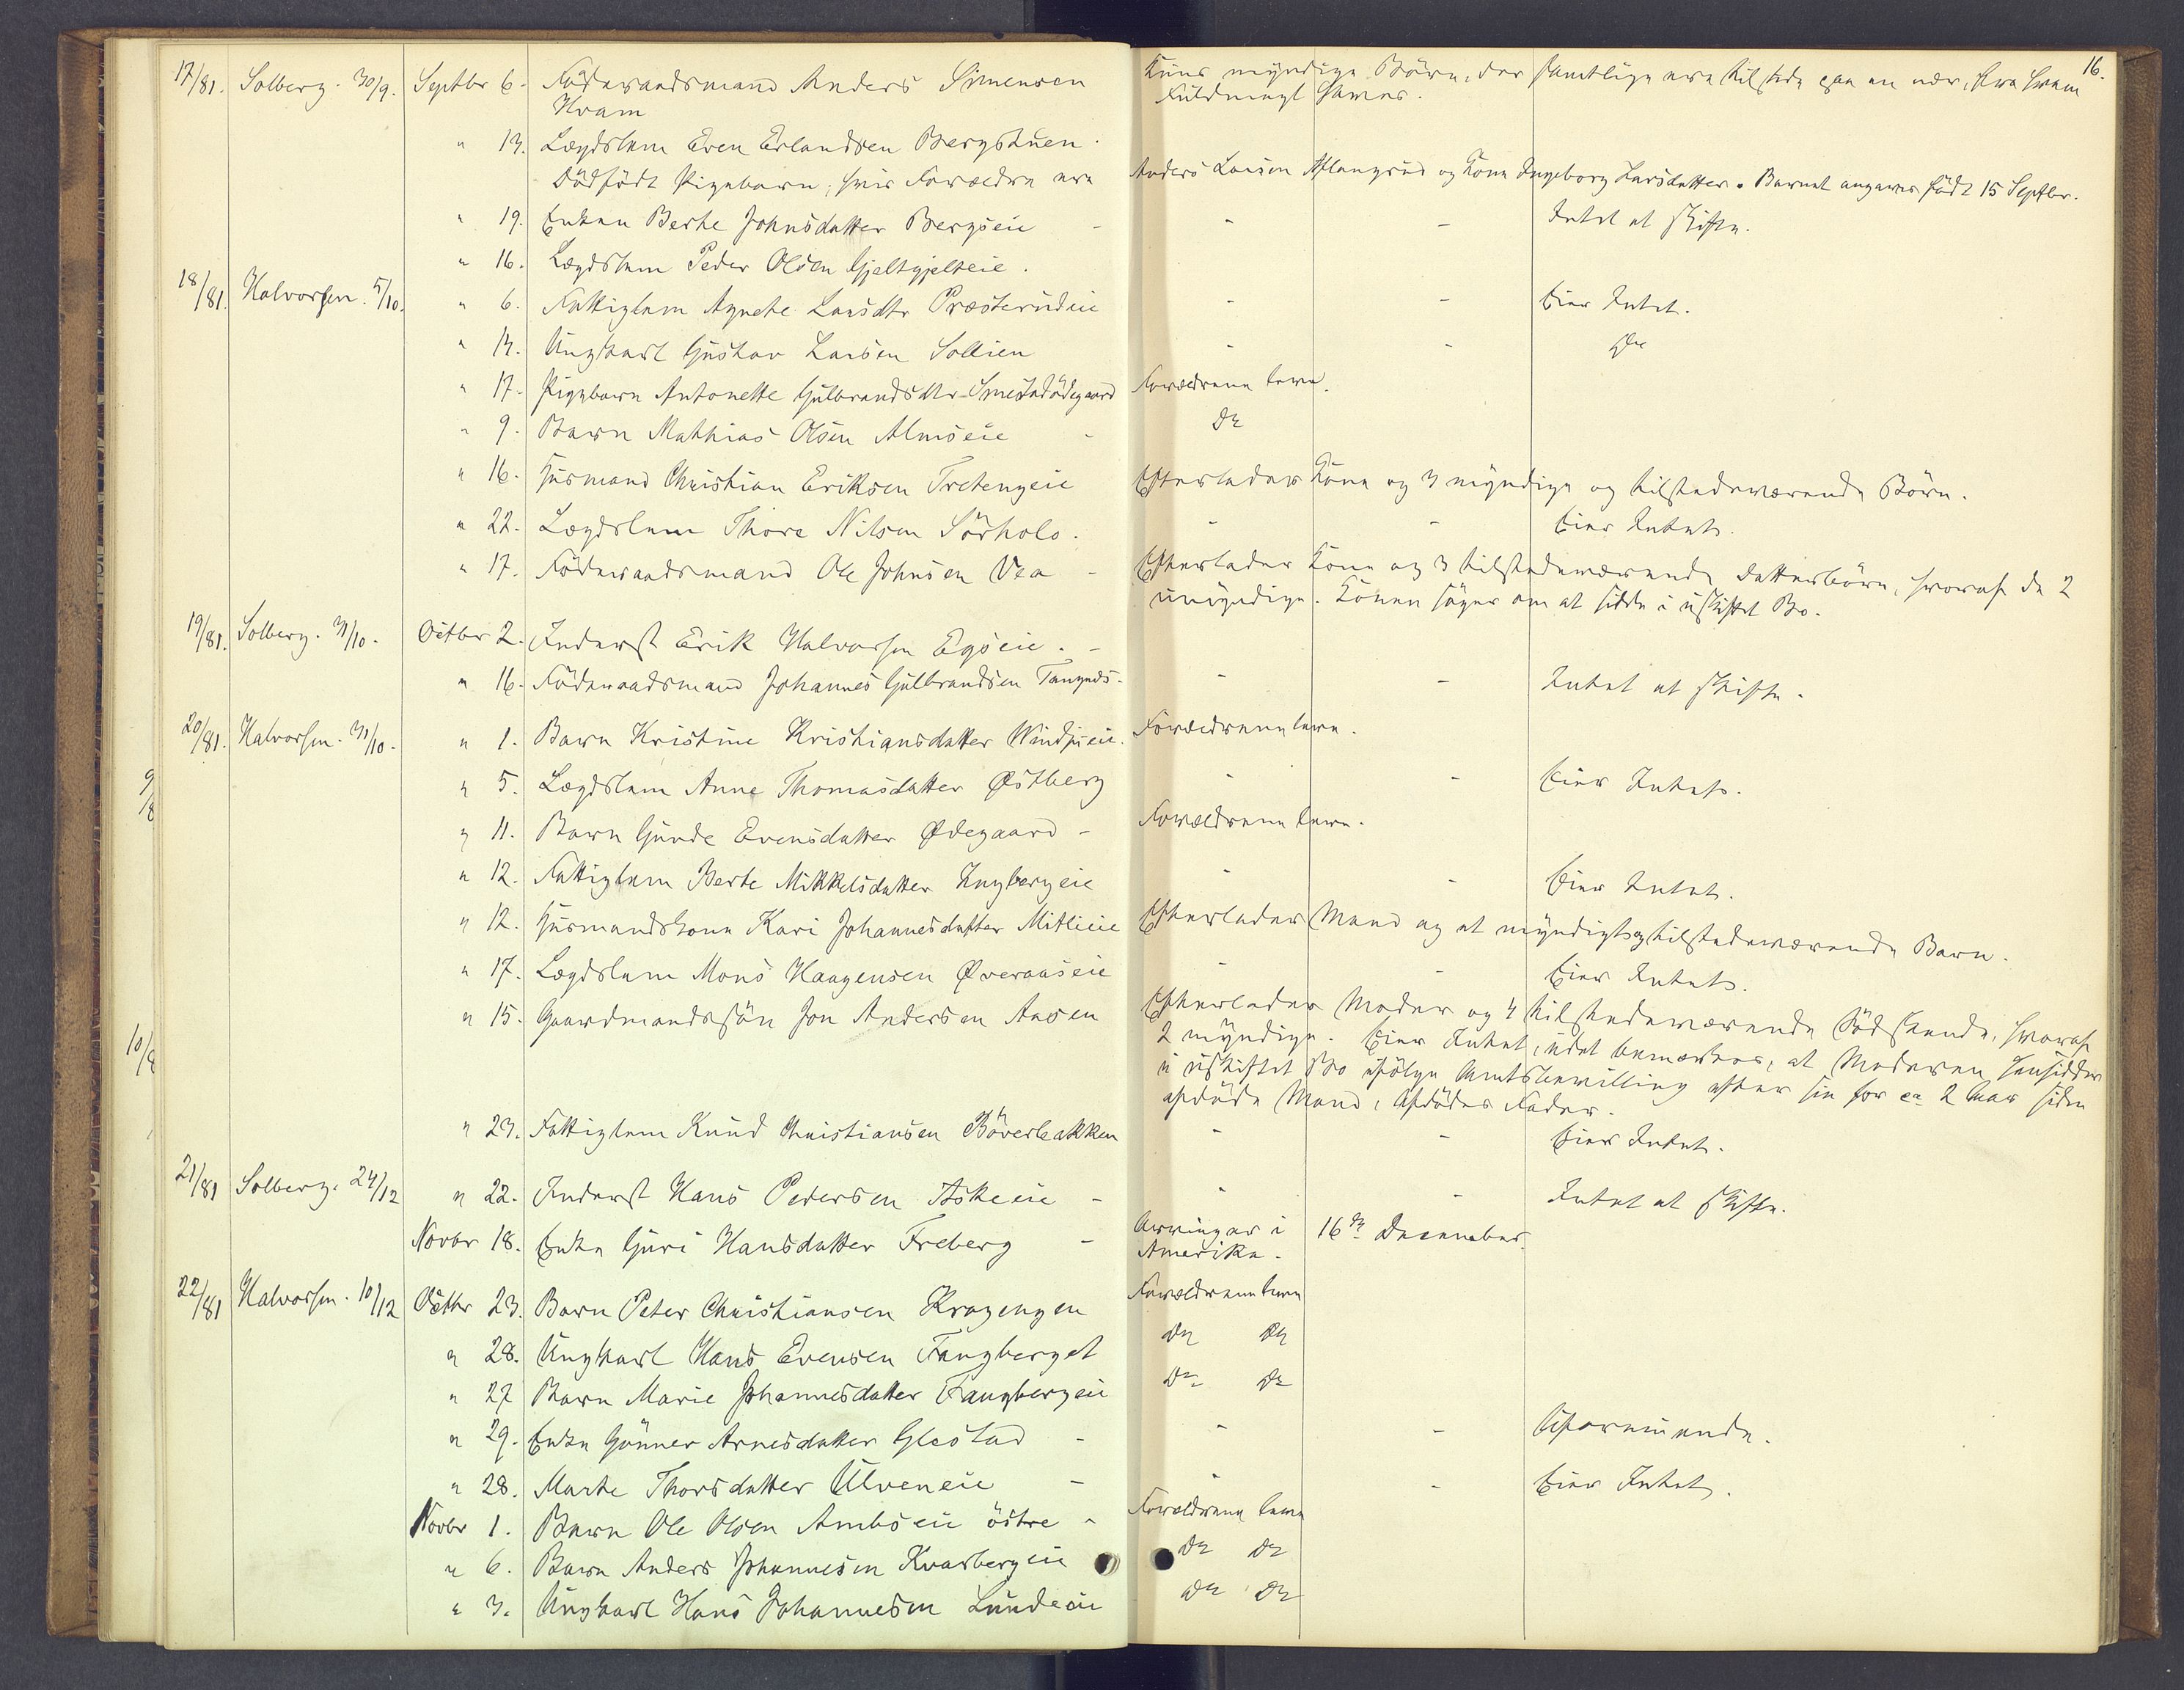 16.
17/81. Solberg. 30/9. Septbr 6. Föderaadsmand Anders Simensen Kuns myndige Börn, der samtlige ere tilstede paa en nær, fra hvem
Kvam Fuldmagt haves.
" 13. Lægdslem Even Erlandsen Bergstuen.
Dödfödt Pigebarn, hvis Forældre ere Anders Larsen Aflangrud og Kone Ingeborg Larsdatter. Barnet angaves födt 15 Septbr.
" 19. Enken Berthe Johnsdatter Bergseie - - - Intet at skifte.
" 16. Lægdslem Peder Olsen Gjeltgjelteie.
18/81. Halvorsen. 5/10. " 6. Fattiglem Agnethe Larsdtr Præsterudeie - - Eier Intet.
" 13. Ungkarl Gustav Larsen Sollien - - Do
" 17. Pigebarn Antonette Gulbrandsdtr Smestadödegaard Forældrene leve.
" 9. Barn Mathias Olsen Almseie - Do
" 16. Husmand Christian Eriksen Tretengeie Efterlader Kone og 3 myndige og tilstedeværende Börn.
" 22. Lægdslem Thore Nilsen Sörholo. - - Eier Intet.
" 17. Föderaadsmand Ole Johnsen Vea - Efterlader Kone og 3 tilstedeværende Datterbörn, hvoraf de 2
umyndige. Konen söger om at sidde i uskiftet Bo.
19/81. Solberg. 31/10. Octbr 2. Inderst Erik Halvorsen Egseie. -
" 16. Föderaadsmand Johannes Gulbrandsen - - Intet at skifte.
20/81. Halvorsen. 31/10. " 1. Barn Kristine Kristiansdatter Windjueie. Forældrene leve.
9/8
" 5. Lægdslem Anne Thomasdatter Østberg - - Eier Intet.
" 11. Barn Gunde Evensdatter Ødegaard - Forældrene leve.
" 12. Fattiglem Berte Mikkelsdatter - - Eier Intet.
" 12. Husmandskone Kari Johannesdatter Mitlieie Efterlader Mand og et myndigt og tilstedeværende Barn.
" 17. Lægdslem Mons Haagensen Øveraaseie - - Eier Intet.
" 15. Gaardmandssön Jon Andersen Aasen Efterlader Moder og 4 tilstedeværende Södskende, hvoraf
10/8
2 myndige. Eier Intet, idet bemærkes, at Moderen hensidder
i uskiftet Bo ifölge Amtsbevilling efter sin for ca 2 Aar siden
afdöde Mand, Afdödes Fader.
" 23. Fattiglem Knud Christiansen Böverbakken - - Eier Intet.
21/81 Solberg. 24/12 " 22. Inderst Hans Pedersen Askeeie - - - Intet at skifte.
Novbr 18. Enke Guri Hansdatter Freberg - Arvinger i 16de December.
Amerika.
22/81 Halvorsen. 10/12 Octbr 23. Barn Peter Christiansen Kragengen Forældrene leve
" 28. Ungkarl Hans Evensen Fangberget Do Do
" 27 Barn Marie Johannesdatter Fangbergeie Do Do
" 29. Enke Gunner Arnesdatter Glestad - - - Uformuende.
" 28. Marthe Thorsdatter Ulveneie - - - Eier Intet.
Novbr 1. Barn Ole Olsen Ambseie östre - Forældrene leve
" 6. Barn Anders Johannesen Kvarbergeie Do Do
" 3. Ungkarl Hans Johannesen Lundeeie Do Do